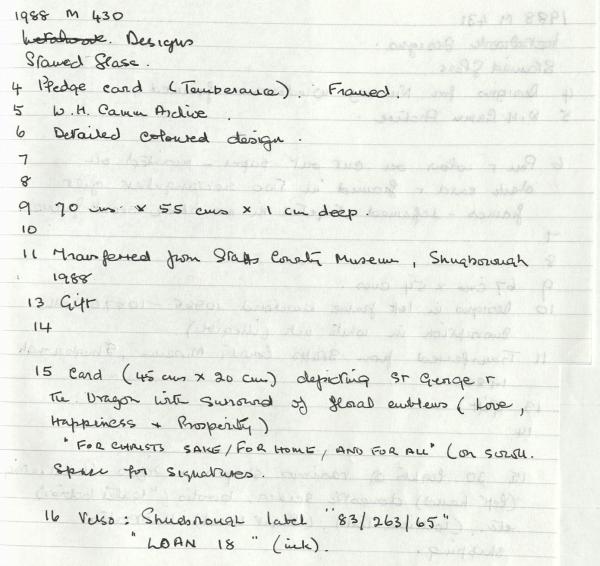 1988 M 430
Metalwork. Designs
Stained Glass.
4 Pledge card (Temberance). Framed.
5 W.H. Camm Archive.
6 Detailed coloured design.
7
8
9 70 cms × 55 cms × 1 cm deep.
10
11 Transferred from Staffs County Museum, Shugborough
1988
13 Gift
14
15 Card (45 cms × 20 cms) depicting St George +
The Dragon with surround of floral emblems (Love,
Happiness + Prosperity)
"FOR CHRISTS SAKE/FOR HOME, AND FOR ALL" (on scroll.
Space for signatures.
16 Verso: Shugborough label "83/263/65"
"LOAN 18" (ink).